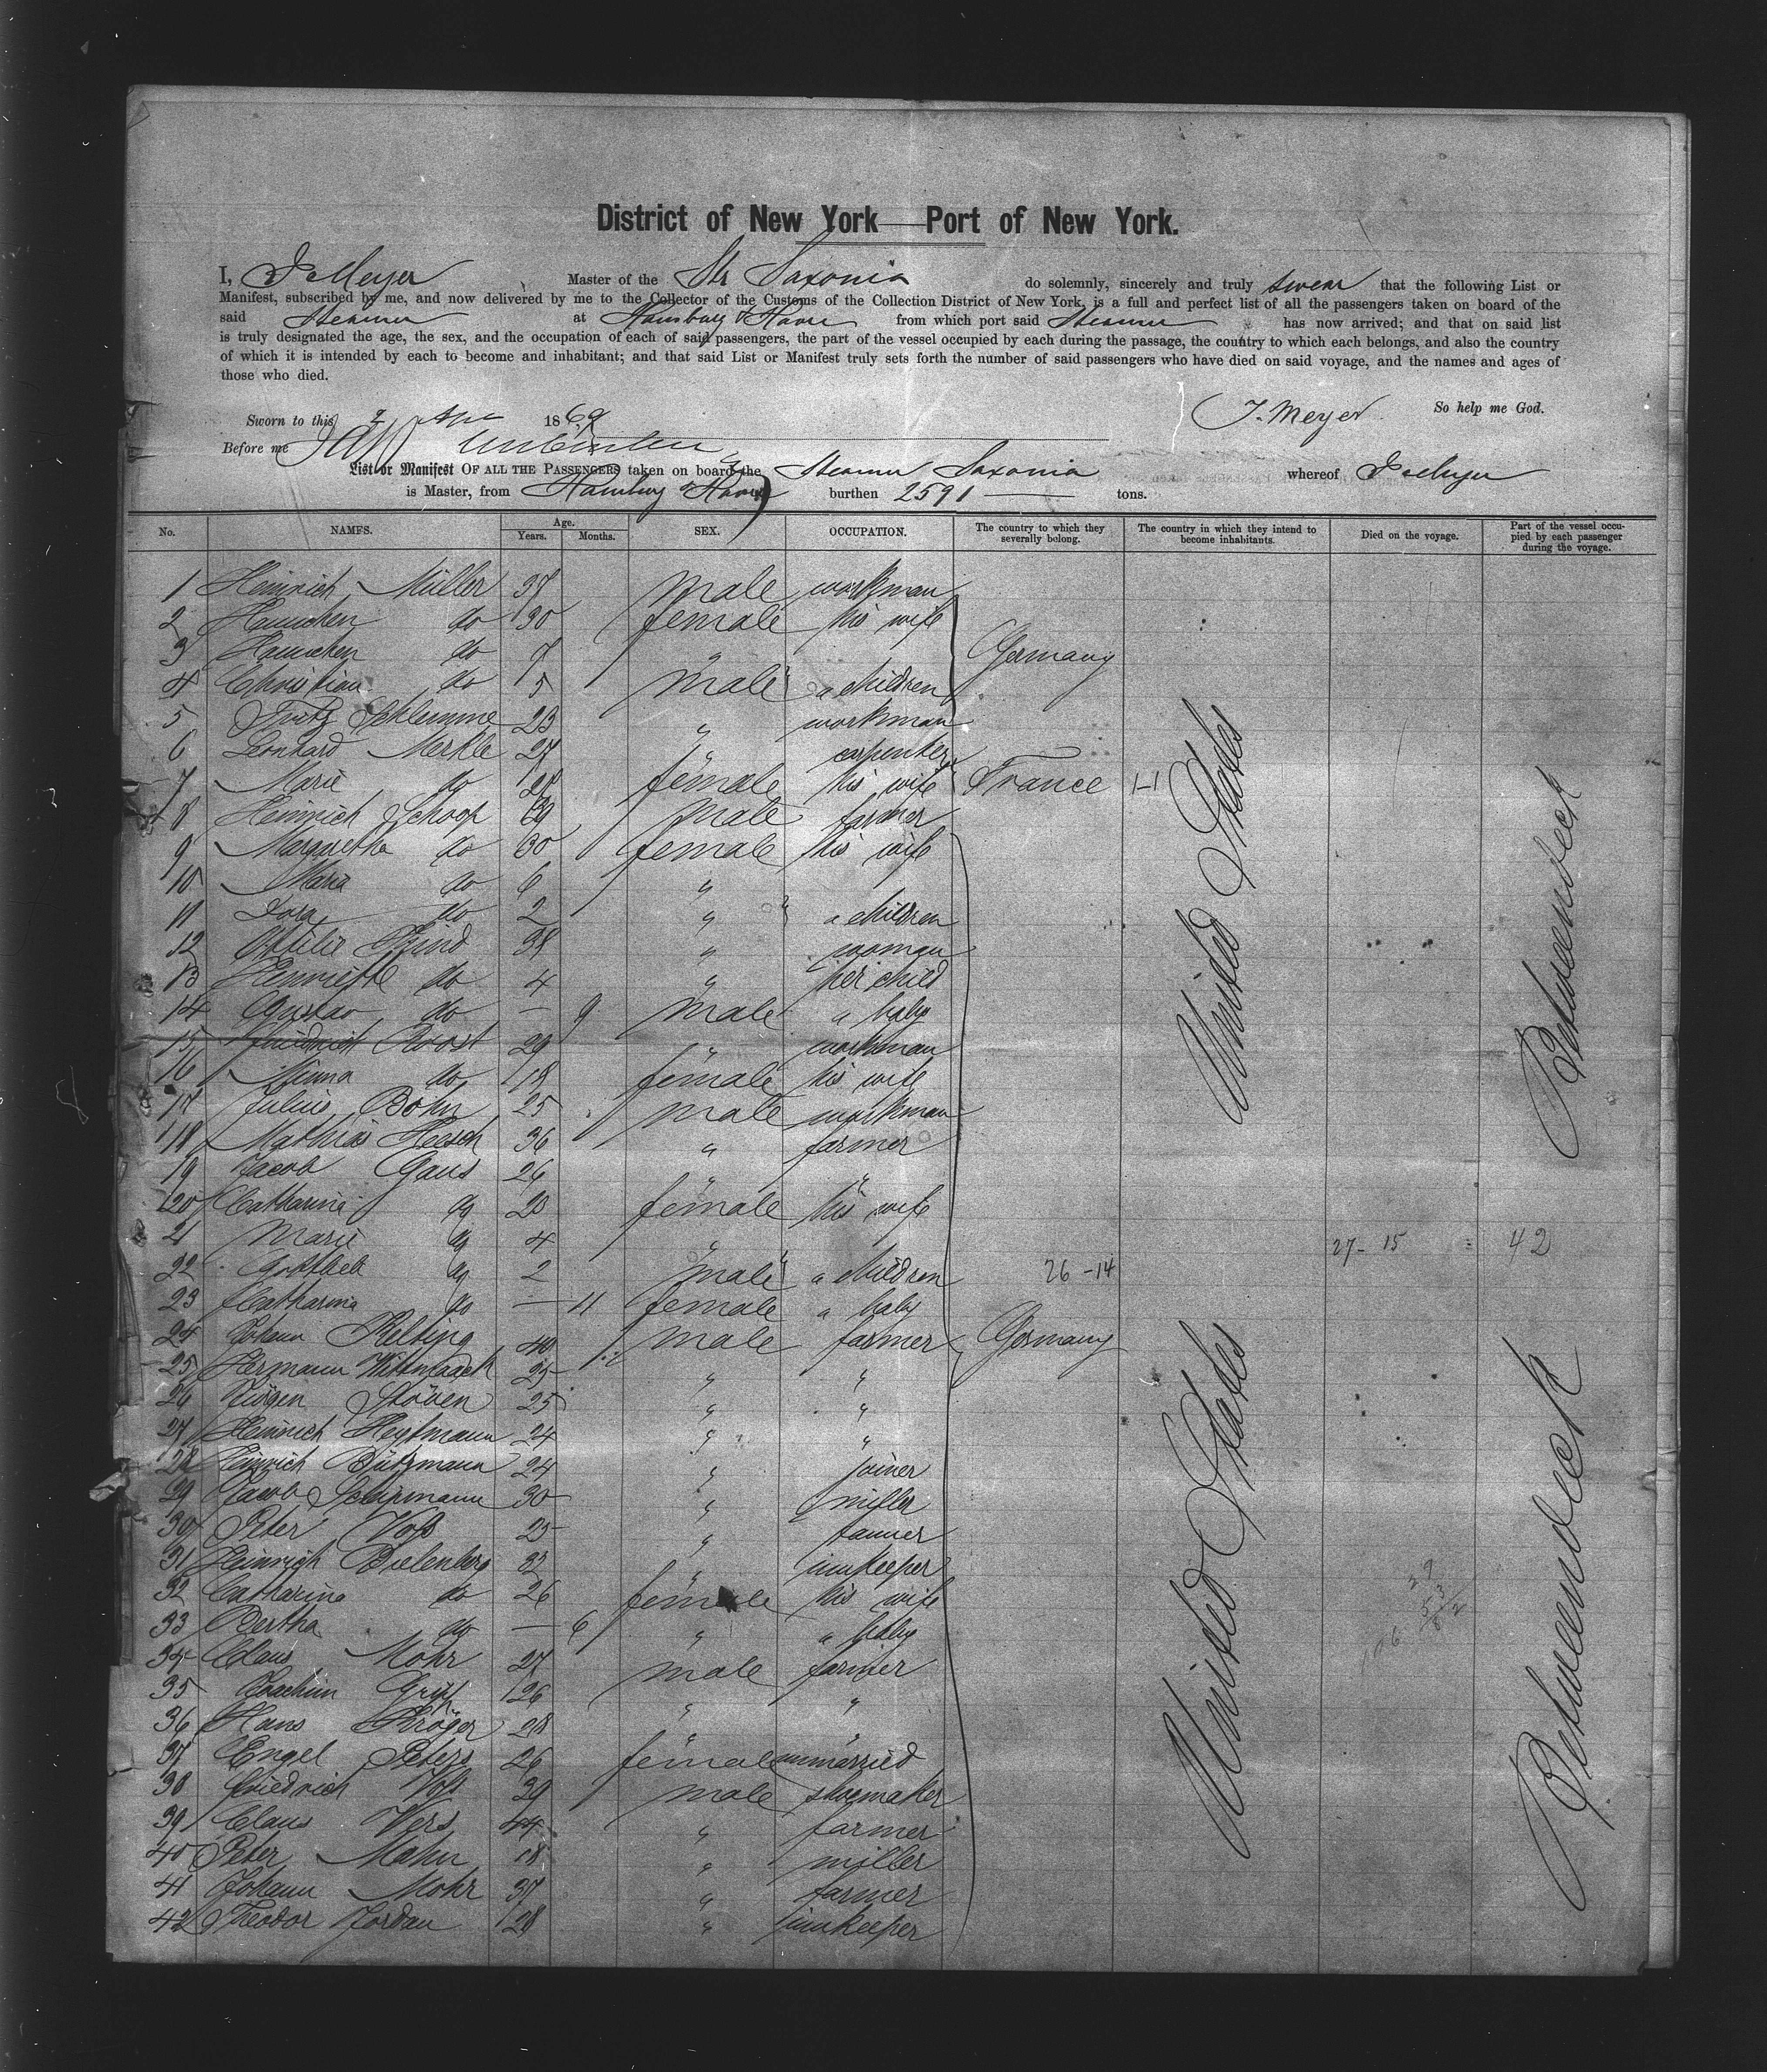 District of New York—Port of New York.
I, J. Meyer Master of the Str Saxonia do solemnly, sincerely and truly swear that the following List or
Manifest, subscribed by me, and now delivered by me to the Collector of the Customs of the Collection District of New York, is a full and perfect list of all the passengers taken on board of the
said Steamer at Hamburg & Havre from which port said Steamer has now arrived; and that on said list
is truly designated the age, the sex, and the occupation of each of said passengers, the part of the vessel occupied by each during the passage, the country to which each belongs, and also the country
of which it is intended by each to become and inhabitant; and that said List or Manifest truly sets forth the number of said passengers who have died on said voyage, and the names and ages of
those who died.
Sworn to this 2 Apr 1869 J. Meyer So help me God.
Before me
List or Manifest OF ALL THE PASSENGERS taken on board the Steamer Saxonia whereof J. Meyer
is Master, from Hamburg & Havre burthen 2591 tons.
No. NAMES. Age. Years. Months. SEX. OCCUPATION. The country to which they severally belong. The country in which they intend to become inhabitants. Died on the voyage. Part of the vessel occupied by each passenger during the voyage.
1 Heinrich Müller 37 male workman
2 Hannchen do 30 female his wife
3 Hannchen do 7 " Germany
4 Christian do 5 male " children
5 Fritz Schlemme 23 " workman
6 Leonhard Merkle 27 " carpenter
7 Marie do female his wife France 1-1
8 Heinrich Schoop male farmer
9 Margaretha do 30 female his wife
10 Maria do 6 "
11 do 2 " " children
12 Ottilie 38 " woman
13 Henriette do 4 " her child
14 Gustav do — 9 male " baby
15 Roost 29 " workman
16 Minna do 18 female his wife
17 Julius Bohn 25 male workman
18 Mathias Heesch 36 " farmer
19 Jacob Gaus 26 " "
20 Catharina do 28 female his wife
21 Marie do 4 " 27 - 15 = 42
22 Gottlieb do 2 male " children 26 - 14
23 Catharina do — 11 female " baby
24 Johann Kelting 40 male farmer Germany
25 Hermann Wittmaack 25 " "
26 Jürgen Stöven 25 " "
27 Heinrich Heytmann 24 " "
28 Heinrich Bützmann 24 " joiner
29 Jacob 30 " miller
30 Peter Voß 25 " tanner
31 Heinrich Bielenberg " innkeeper
32 Catharina do 26 female his wife
33 Bertha do — 6 " " baby
34 Claus Mohr 27 male farmer
35 Joachim 26 " "
36 Hans Kröger 28 " "
37 Engel Peters 26 female unmarried
38 Friedrich Voß male shoemaker
39 Claus Vers 44 " farmer
40 Peter Mahn 18 " miller
41 Johann Mohr 37 " farmer
42 Theodor Jordan 28 " innkeeper
United States
United States
Betweendeck
Betweendeck